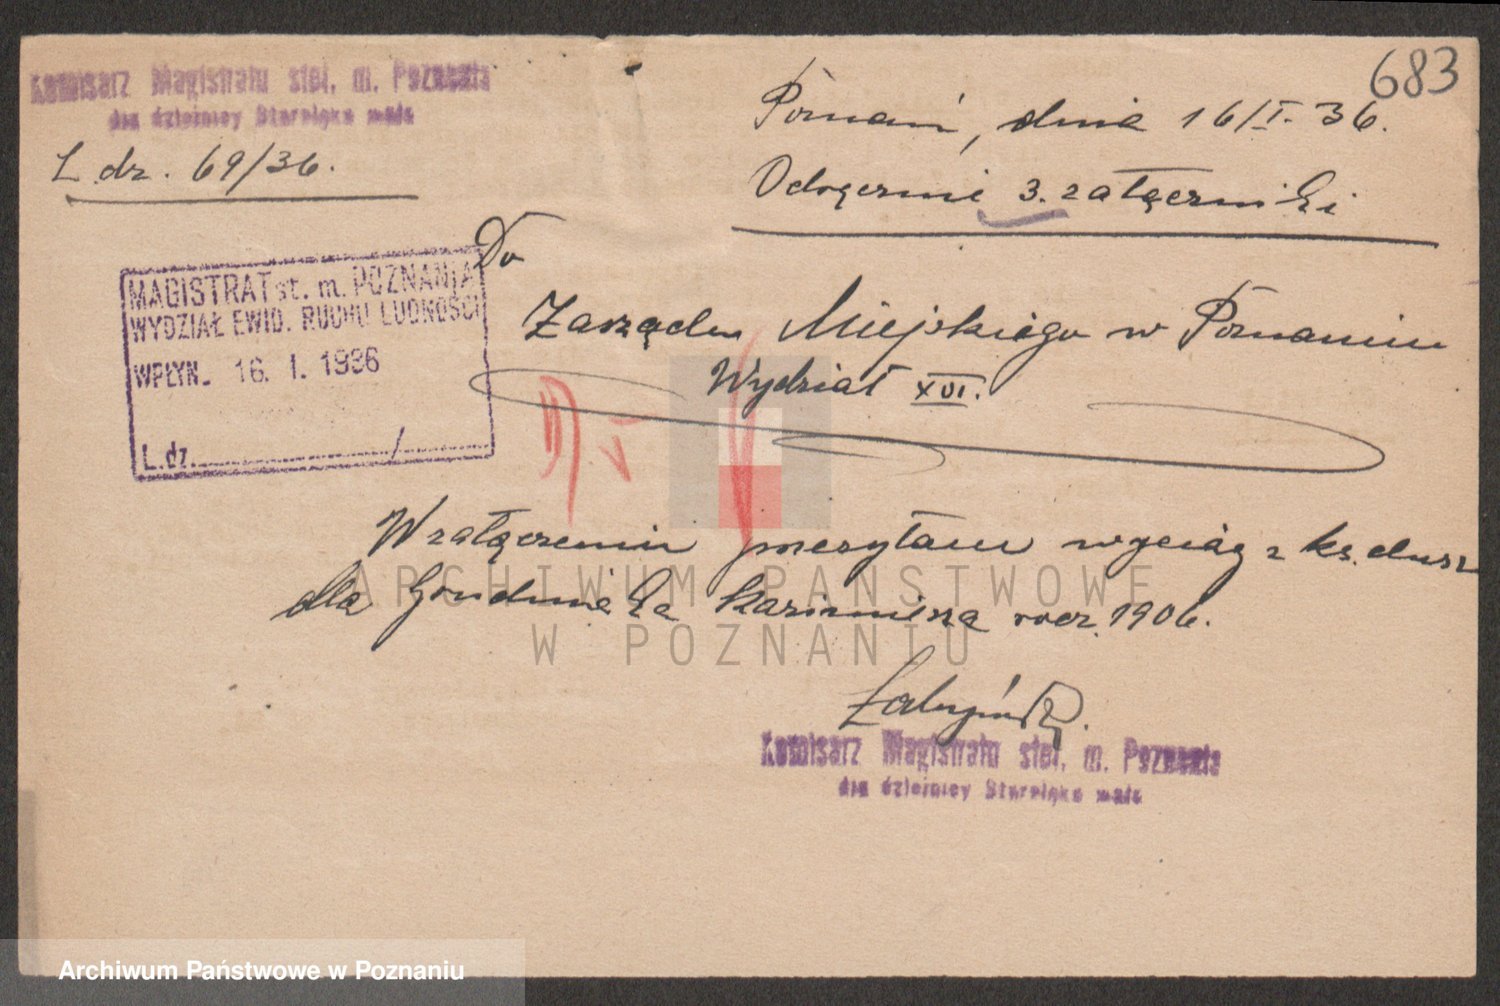 683
Komisarz Magistratu stoł. m. Poznania
dla dzielnicy Starołęka mała
L. dz. 69/36.
Poznań, dnia 16/I. 36.
Odręcznie 3. załączniki
MAGISTRAT st. m. POZNANIA
WYDZIAŁ EWID. RUCHU LUDNOŚCI
WPŁYN. 16. I. 1936
L. dz. /
Do
Zarządu Miejskiego w Poznaniu
Wydział XVI.
W załączeniu przesyłam wyciąg z ks. dusz
dla Grudniaka Kazimierza rocz. 1906.
ARCHIWUM PAŃSTWOWE
W POZNANIU
Komisarz Magistratu stoł. m. Poznania
dla dzielnicy Starołęka mała
Archiwum Państwowe w Poznaniu